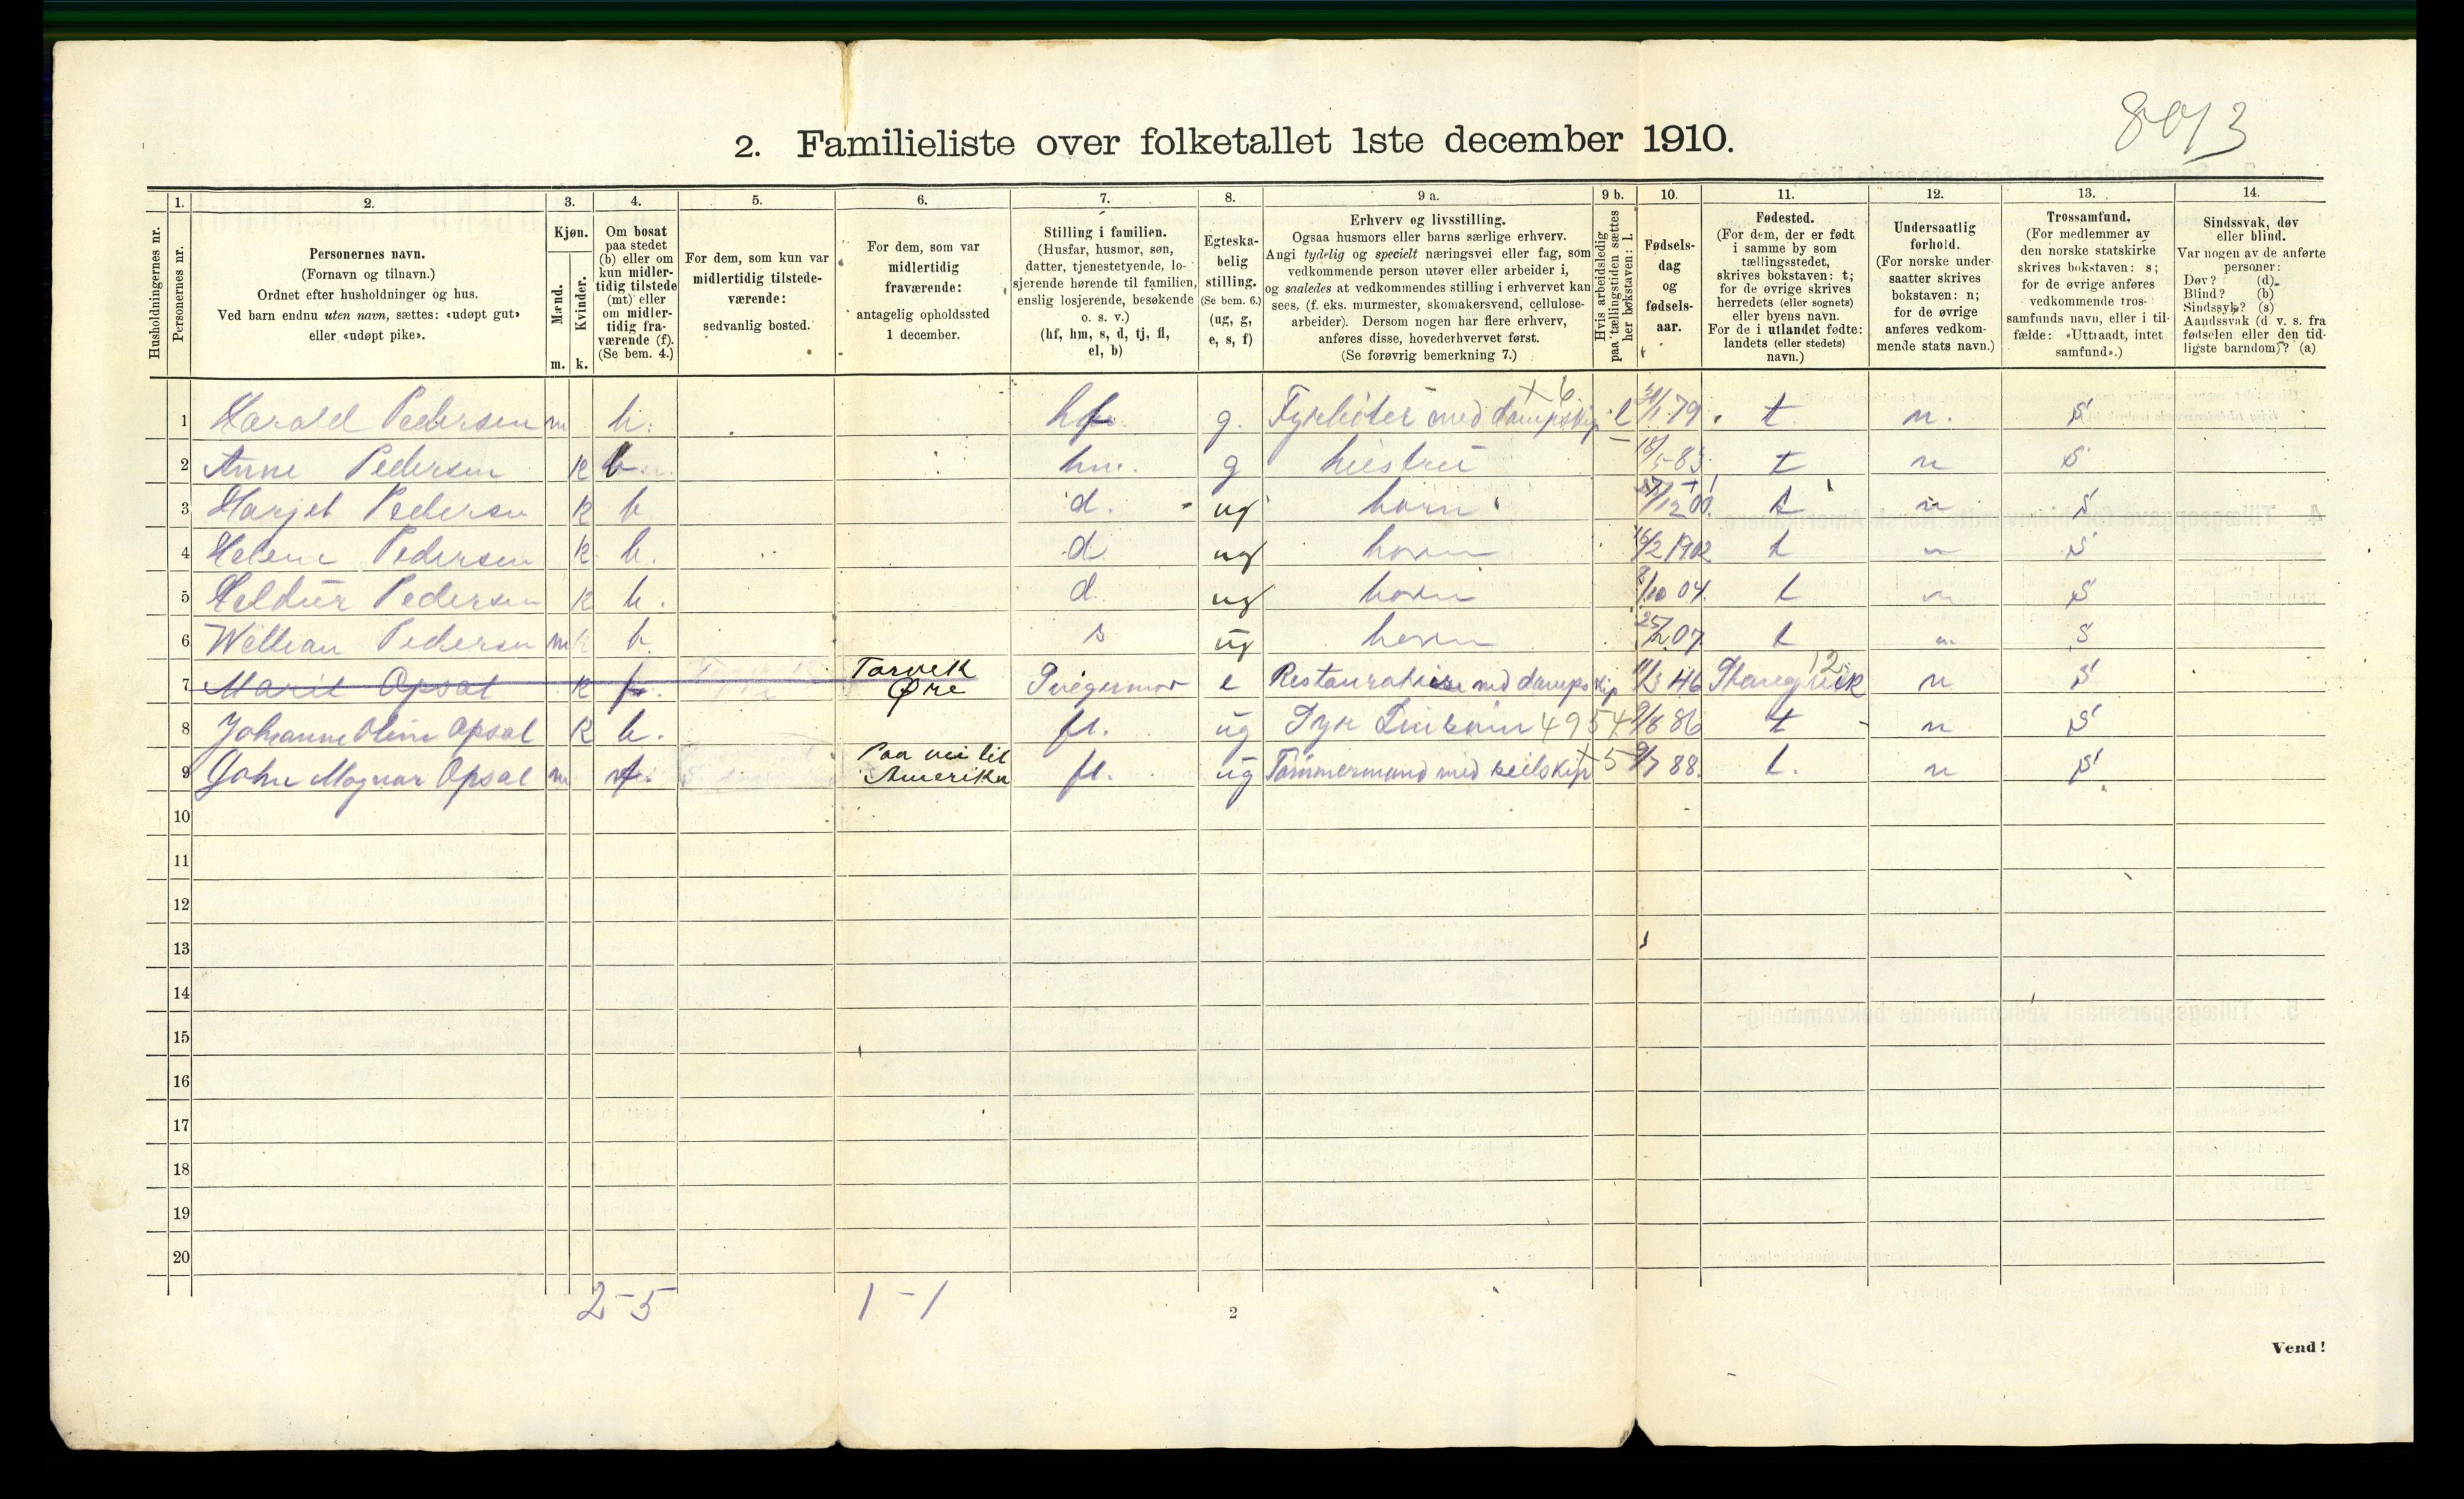 8073
2. Familieliste over folketallet 1ste december 1910.
Husholdningernes nr.
1. Personernes nr.
2. Personernes navn.
(Fornavn og tilnavn.)
Ordnet efter husholdninger og hus.
Ved barn endnu uten navn, sættes: «udøpt gut»
eller «udøpt pike».
3. Kjøn.
Mænd. m.
Kvinder. k.
4. Om bosat
paa stedet
(b) eller om
kun midler-
tidig tilstede
(mt) eller
om midler-
tidig fra-
værende (f).
(Se bem. 4.)
5. For dem, som kun var
midlertidig tilstede-
værende:
sedvanlig bosted.
6. For dem, som var
midlertidig
fraværende:
antagelig opholdssted
1 december.
7. Stilling i familien.
(Husfar, husmor, søn,
datter, tjenestetyende, lo-
sjerende hørende til familien,
enslig losjerende, besøkende
o. s. v.)
(hf, hm, s, d, tj, fl,
el, b)
8. Egteska-
belig
stilling.
(Se bem. 6.)
(ug, g,
e, s, f)
9 a. Erhverv og livsstilling.
Ogsaa husmors eller barns særlige erhverv.
Angi tydelig og specielt næringsvei eller fag, som
vedkommende person utøver eller arbeider i,
og saaledes at vedkommendes stilling i erhvervet kan
sees, (f. eks. murmester, skomakersvend, cellulose-
arbeider). Dersom nogen har flere erhverv,
anføres disse, hovederhvervet først.
(Se forøvrig bemerkning 7.)
9 b. Hvis arbeidsledig
paa tællingstiden sættes
her bokstaven: l.
10. Fødsels-
dag
og
fødsels-
aar.
11. Fødested.
(For dem, der er født
i samme by som
tællingsstedet,
skrives bokstaven: t;
for de øvrige skrives
herredets (eller sognets)
eller byens navn.
For de i utlandet fødte:
landets (eller stedets)
navn.)
12. Undersaatlig
forhold.
(For norske under-
saatter skrives
bokstaven: n;
for de øvrige
anføres vedkom-
mende stats navn.)
13. Trossamfund.
(For medlemmer av
den norske statskirke
skrives bokstaven: s;
for de øvrige anføres
vedkommende tros-
samfunds navn, eller i til-
fælde: «Uttraadt, intet
samfund».)
14. Sindssvak, døv
eller blind.
Var nogen av de anførte
personer:
Døv? (d)
Blind? (b)
Sindssyk? (s)
Aandssvak (d. v. s. fra
fødselen eller den tid-
ligste barndom)? (a)
1 Harald Pedersen m b. hf. g. Fyrbøter med dampskip x 6 l 1 79 t n. S
2 Anne Pedersen K b hm. g hustru 18/5 83 t n S
3 Marjet Pedersen K b d. ug barn 12 00. t n S
4 Helene Pedersen K b. d ug barn 16/2 1902 t n S
5 Pedersen K b. d. ug barn 8/10 04. t n S
6 Pedersen m b s ug barn 25/2 07. t n S
7 Marit Opsal K f. Torvik Øre Svigermor e med dampskip 11/3 46 12 n S
8 Johanne Oline Opsal K b. fl. ug 4954 9/8 86 t n S
9 John Magnar Opsal m f. Paa vei til Amerika fl. ug Tømmermand med seilskip x 5 9/7 88. t. n S
10
11
12
13
14
15
16
17
18
19
20
2-5 1-1
2
Vend!